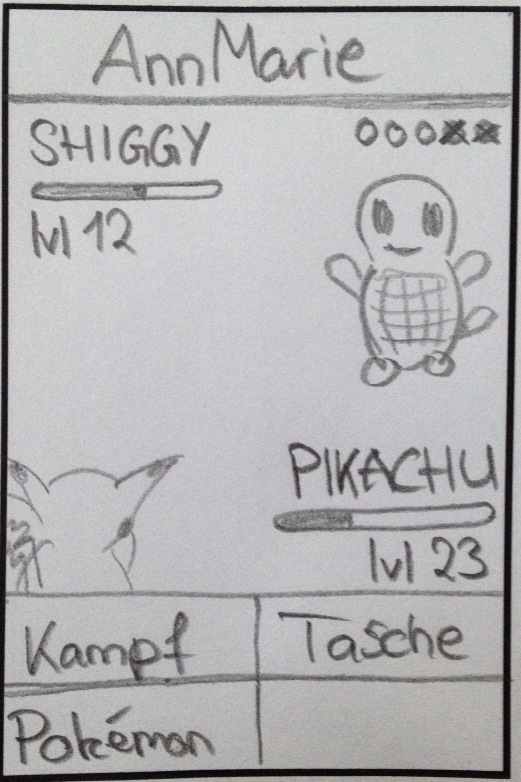 AnnMarie
SHIGGY
lvl 12
PIKACHU
lvl 23
Kampf
Tasche
Pokémon